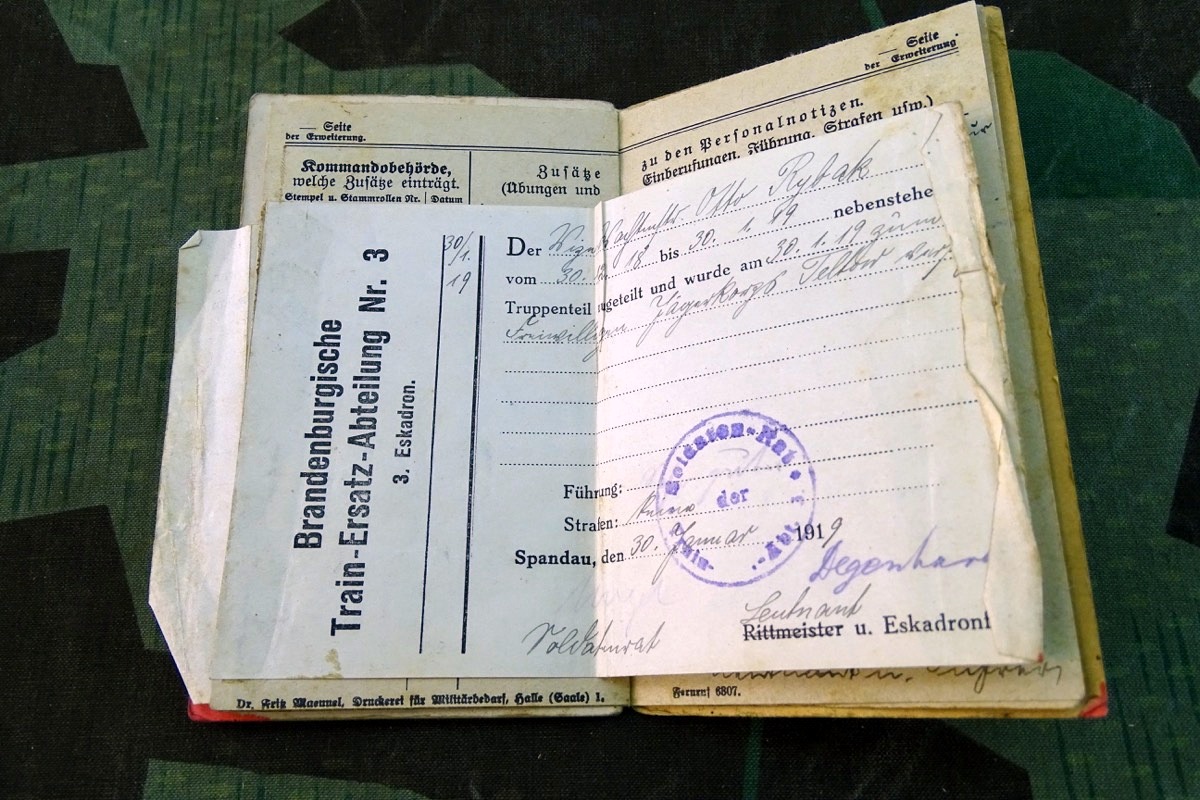 Seite
der Erweiterung.
Kommandobehörde,
welche Zusätze einträgt.
Stempel u. Stammrollen Nr. Datum
Zusätze
(Übungen und
Seite
der Erweiterung.
zu den Personalnotizen.
Einberufungen, Führung, Strafen usw.)
Brandenburgische
Train-Ersatz-Abteilung Nr. 3
3. Eskadron.
30/
1.
19
Der Vizewachtmstr Otto Rybak
vom 30. 18 bis 30. 1. 19 nebenstehe
Truppenteil zugeteilt und wurde am 30. 1. 19 zum
Freiwilligen Jägerkorps Teltow
Führung:
Strafen: keine
Spandau, den 30. Januar 1919
Soldaten-Rat
der
Degenhard
Leutnant
Soldatenrat
Rittmeister u. Eskadronf
Dr. Fritz Maennel, Druckerei für Militärbedarf, Halle (Saale) 1.
Fernruf 6807.